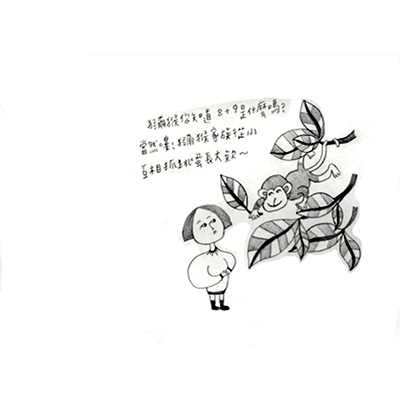 獼猴你知道 8+9是什麼嗎?
當然囉、獼猴家族從小
互相抓跳蚤長大欸~